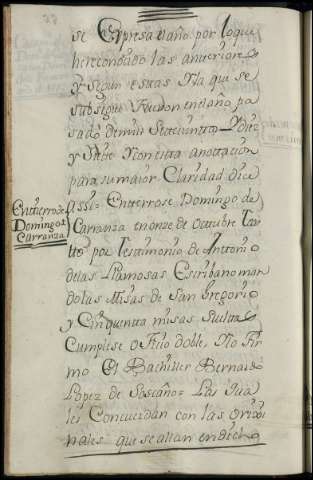 se Expresa el año por lo que
he reconosido las anteriores
Y segun estas Y la que se
subsigue fueron en el año pa
sado de mill Setecientos Y diez
Y siete Y con esta anottacion
para su maior Claridad dice
assi: Entterrose Domingo de
Carranza en onze de octubre Tes
tto por Testimonio de Anttonio
de las Llamosas Escribano man
do las Misas de San Gregorio
Y Cinquenta misas sueltas
Cumplese ofizio doble, No fir
mo El Bachiller Bernabe
Lopez de Sescaño= Las qua
les Concuerdan con las orixi
nales que se allan en dicho
Entierro de
Domingo de
Carranza